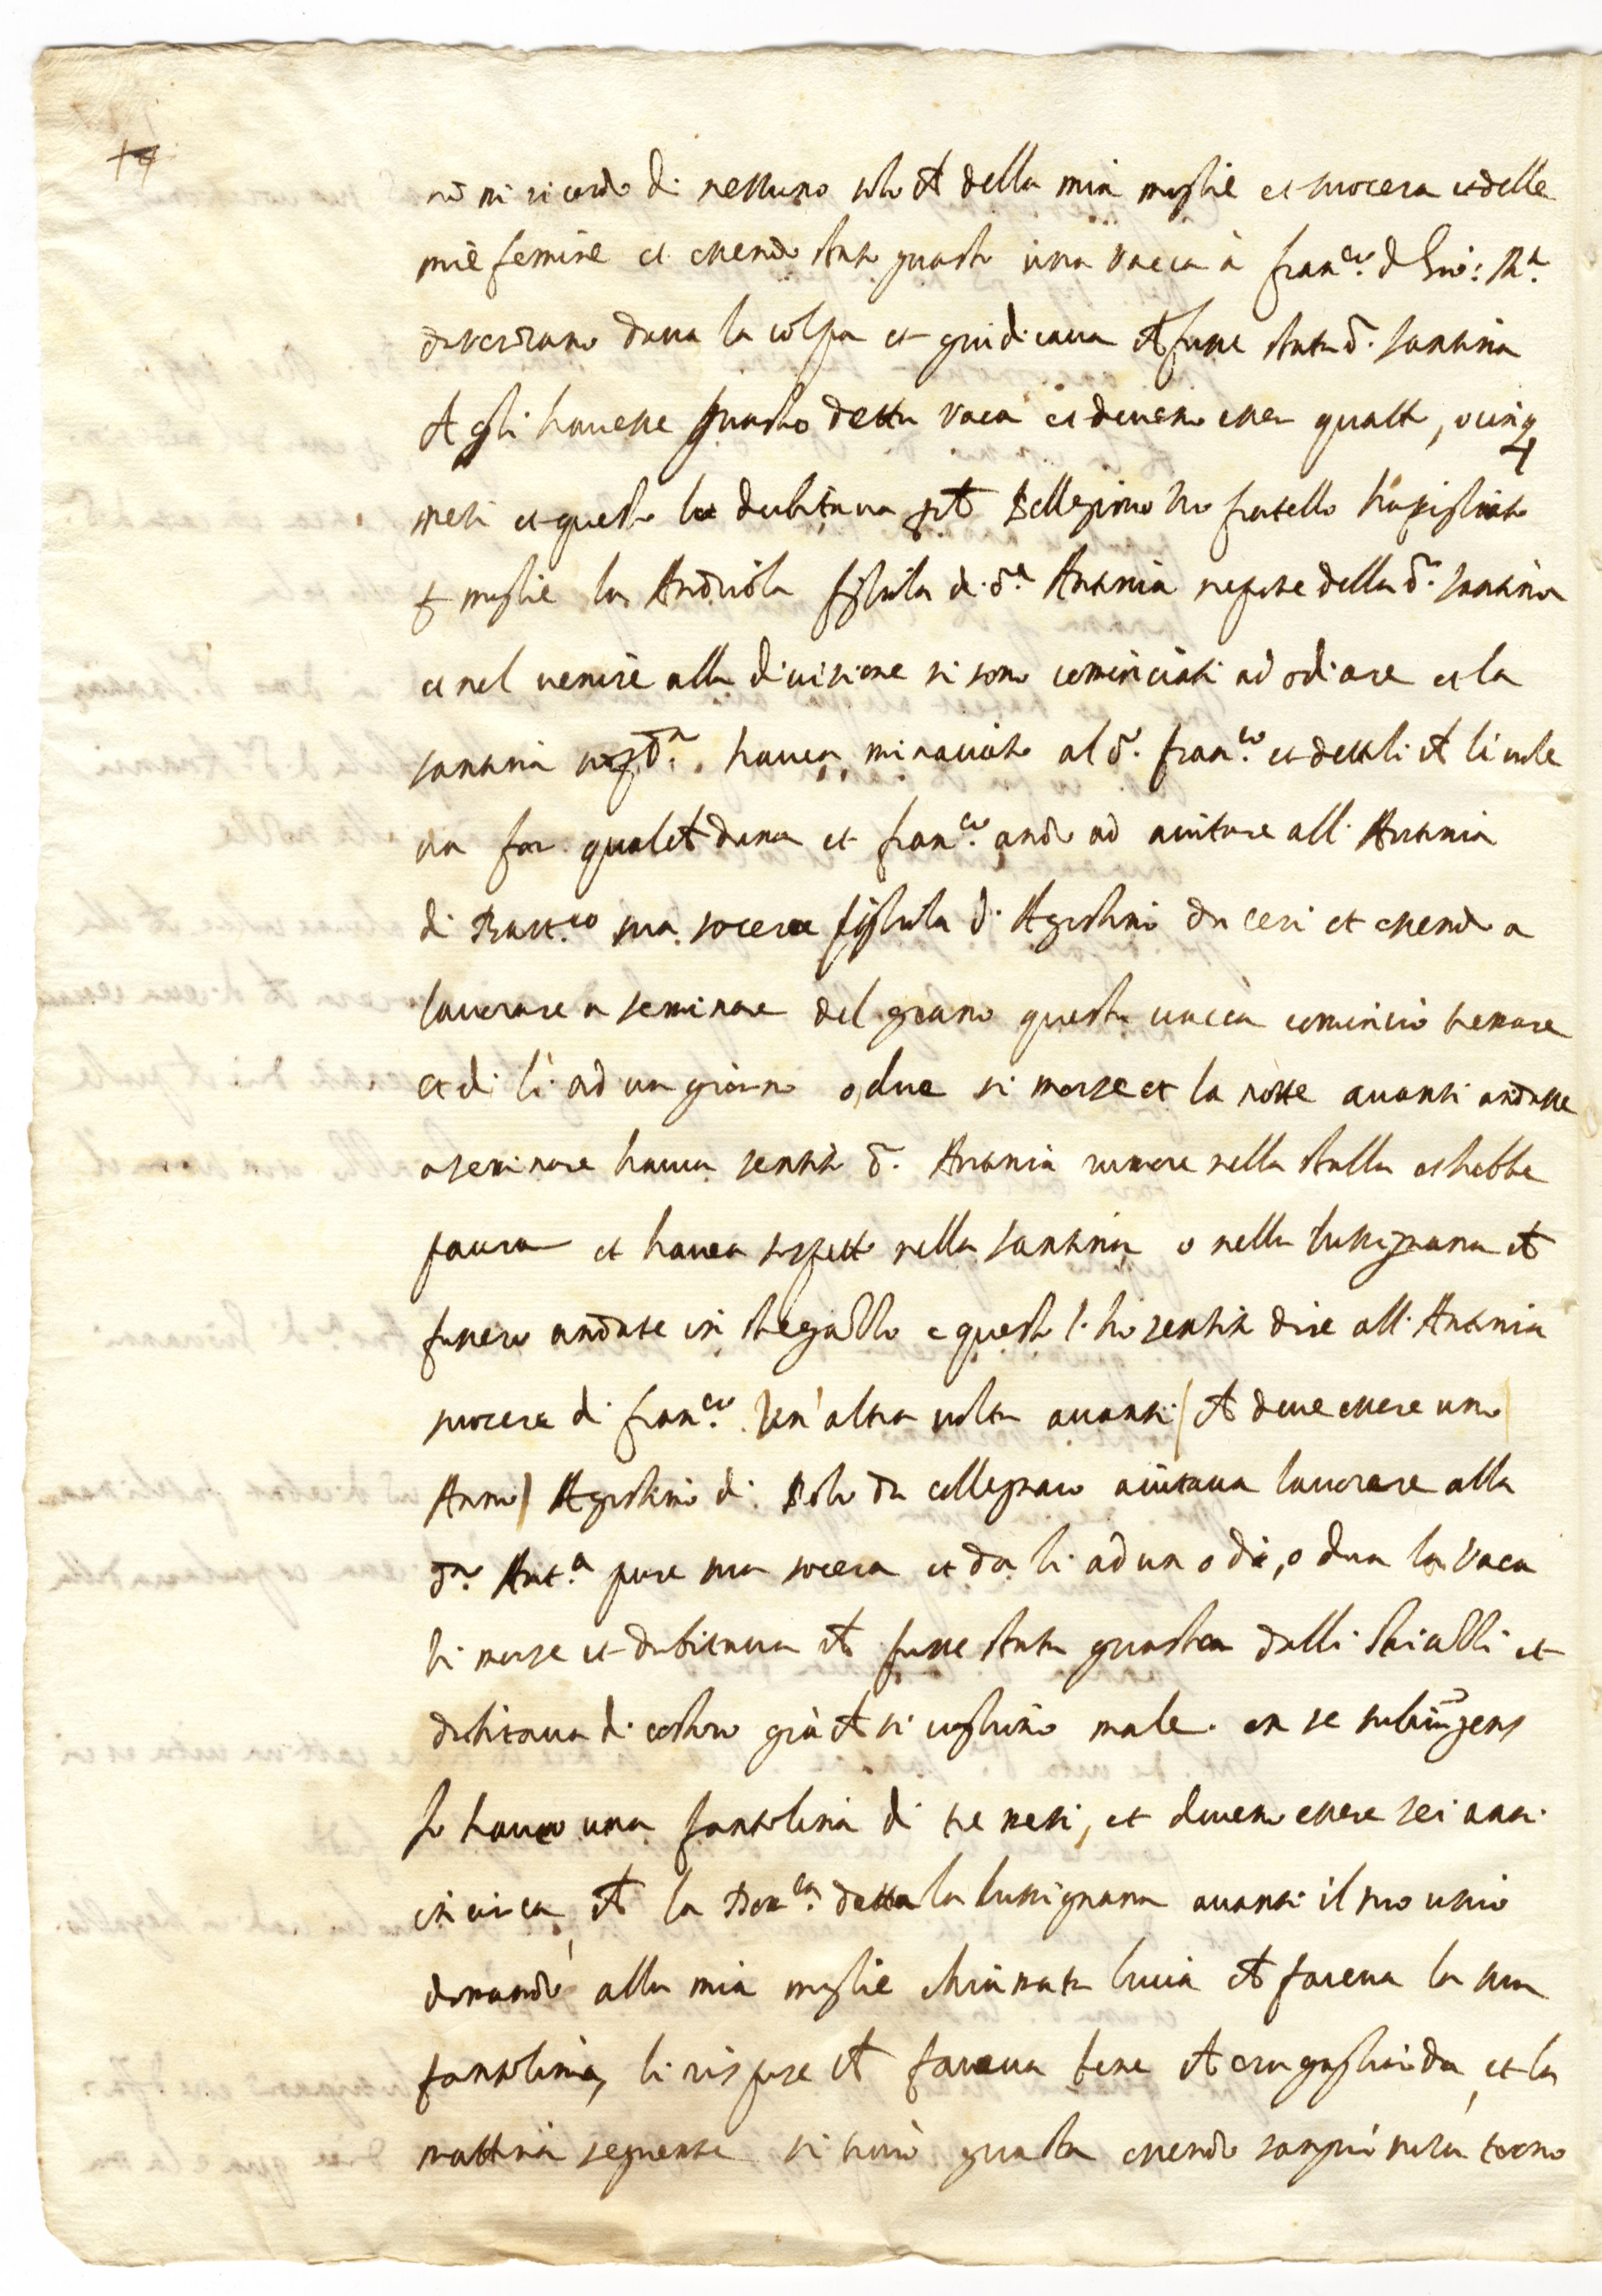 nō mi ricordo di nessuno solo ch della mia moglie et suocera et delle
mie femine et essendo stata guasta una vacca à Fran.co d Gio: B.a
da Verzano dava la colpa et giudicava ch fusse stata d. Santina
ch gli havesse guasto detta vaca et devano esser quatt, o cinq
mesi et questo lo dubitava pch Pellegrino suo fratello hà pigliato
p moglie la Andriola figliola di d.a Antonia nepote della d.a Santina
et nel venire alla divisione si sono cominciati ad odiare et la
Santina sop.d.a havea minacciato al d. Fran.co et dettoli ch li vole
va far qualch dano et Fran.co andò ad aiutare all Antonia
di Batt.o sua socera figliola d Agostino da Ceri et essendo a
lavorare a seminare del grano questa vacca cominciò tremare
et di lì ad un giorno o due si morse et la notte avanti andasse
a seminare havea sentito d. Antonia rumore nella stalla et hebbe
paura et havea sospetto nella Santina o nella Lussignana ch
fussero andate in stregallo e questo l hò sentito dire all Antonia
suocera di Fran.co Un'altra volta avanti (ch deve essere uno
Anno) Agostino di Polo da Collegnaco aiutava lavorare alla
d.a Ant.a pure sua socera et da li ad uno di, o dua la vaca
si morse et dubitava ch fusse stata guasta dalli
dubitava di costoro già ch si vogliono male. ex se
Io havevo una fantolina di tre mesi, et devano essere sei anni
in circa ch la Dom.ca detta la Lussignana avanti il suo uscio
domandò alla mia moglie chiamata Lucia ch faceva la sua
fantolina, li rispose ch faceva bene ch era gagliarda et la
mattina seguente si trovò guasta essendo torno